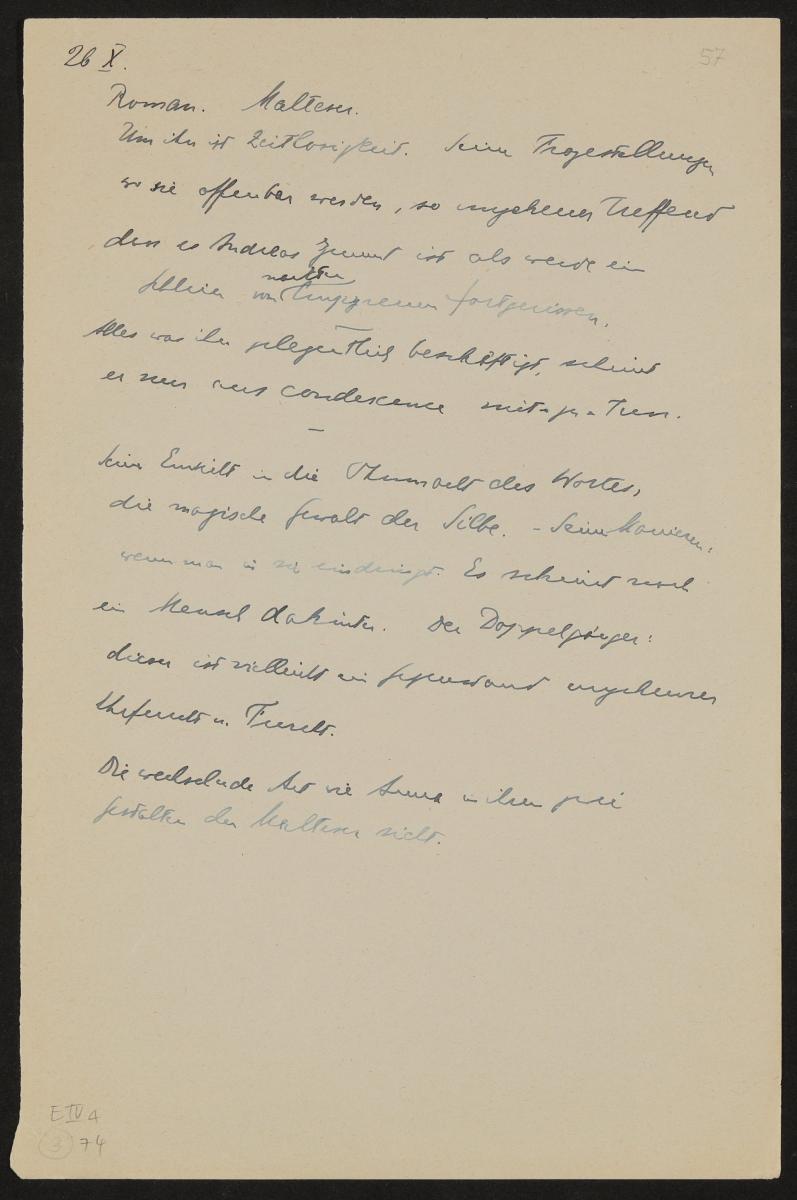 26 X.
57
Roman. Malteser.
Um ihn ist Zeitlosigkeit. Seine Fragestellungen
wo sie offenbar werden, so ungeheuer treffend
dass es Andreas zumut ist als werde ein
Schleier von fortgerissen.
Alles was ihn gelegentlich beschäftigt, scheint
er nur aus condescence mit-zu-tun.
–
Sein Einblick in die des Wortes,
die magische Gewalt der Silbe. – Seine Manieren:
wenn man in sie eindringt. Es scheint noch
ein Mensch dahinter. Der Doppelgänger:
dieser ist vielleicht ein Gegenstand ungeheurer
Ehrfurcht u. Furcht.
Die wechselnde Art wie in ihren zwei
Gestalten den Malteser sieht.
E IV 4
3 74